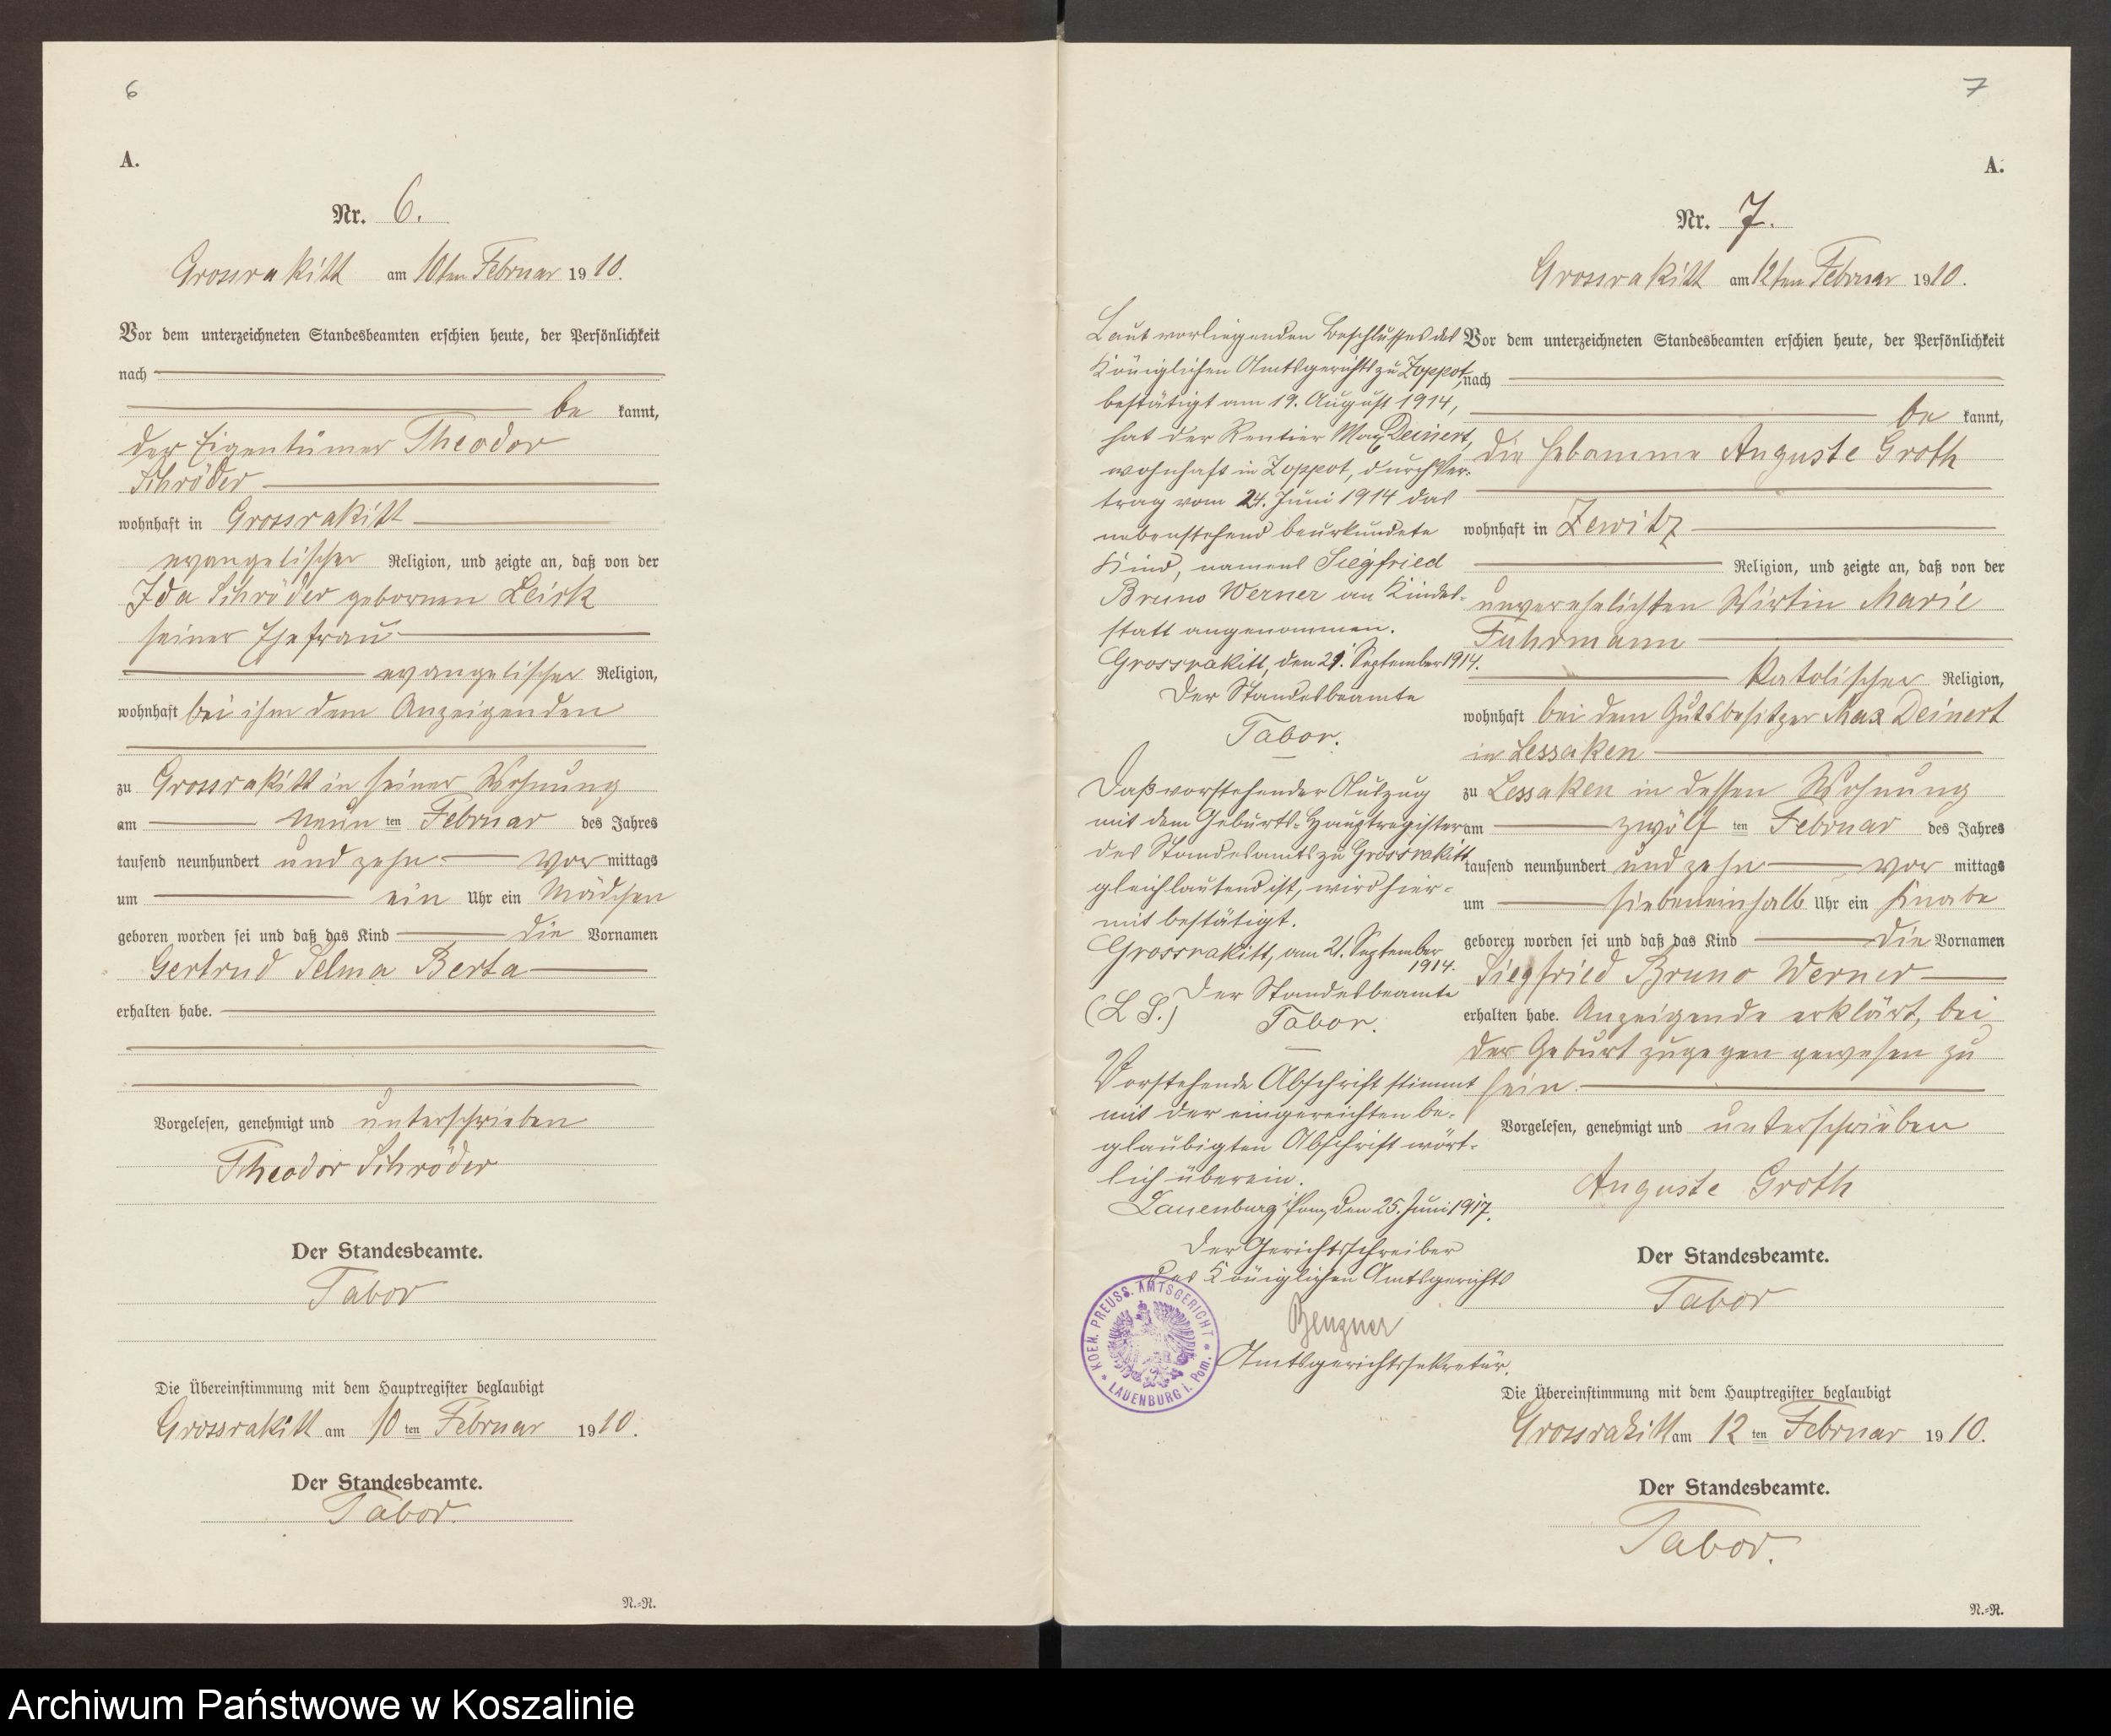 6
A.
Nr. 6.
Grossrakitt am 10ten Februar 1910.
Vor dem unterzeichneten Standesbeamten erschien heute, der Persönlichkeit
nach
be kannt,
der Eigentümer Theodor
Schröder
wohnhaft in Grossrakitt
evangelischer Religion, und zeigte an, daß von der
Ida Schröder gebornen Leisk
seiner Ehefrau
evangelischer Religion,
wohnhaft bei ihm dem Anzeigenden
zu Grossrakitt in seiner Wohnung
am neun ten Februar des Jahres
tausend neunhundert und zehn vor mittags
um ein Uhr ein Mädchen
geboren worden sei und daß das Kind die Vornamen
Gertrud Selma Berta
erhalten habe.
Vorgelesen, genehmigt und unterschrieben
Theodor Schröder
Der Standesbeamte.
Tabor
Die Übereinstimmung mit dem Hauptregister beglaubigt
Grossrakitt am 10 ten Februar 1910.
Der Standesbeamte.
Tabor.
N.=R.
7
A.
Nr. 7.
Grossrakitt am 12ten Februar 1910.
Vor dem unterzeichneten Standesbeamten erschien heute, der Persönlichkeit
nach
be kannt,
die Hebamme Auguste Groth
wohnhaft in Zewitz
Religion, und zeigte an, daß von der
unverehelichten Wirtin Marie
Fuhrmann
katolischer Religion,
wohnhaft bei dem Gutsbesitzer Max Deinert
in Lessaken
zu Lessaken in dessen Wohnung
am zwölf ten Februar des Jahres
tausend neunhundert und zehn vor mittags
um siebeneinhalb Uhr ein Knabe
geboren worden sei und daß das Kind die Vornamen
Siegfried Bruno Werner
erhalten habe. Anzeigende erklärt, bei
der Geburt zugegen gewesen zu
sein.
Vorgelesen, genehmigt und unterschrieben
Auguste Groth
Der Standesbeamte.
Tabor
Die Übereinstimmung mit dem Hauptregister beglaubigt
Grossrakitt am 12 ten Februar 1910.
Der Standesbeamte.
Tabor.
N.=R.
Laut vorliegenden Beschlusses des
Königlichen Amtsgerichts zu Zoppot,
bestätigt am 19. August 1914,
hat der Rentier Max Deinert,
wohnhaft in Zoppot, durch Ver-
trag vom 24. Juni 1914 das
nebenstehend beurkundete
Kind, namens Siegfried
Bruno Werner an Kindes-
statt angenommen.
Grossrakitt, den 21. September 1914.
Der Standesbeamte
Tabor.
Daß vorstehender Auszug
mit dem Geburts-Hauptregister
des Standesamts zu Grossrakitt
gleichlautend ist, wird hier-
mit bestätigt.
Grossrakitt, am 21. September
1914.
Der Standesbeamte
(L. S.) Tabor.
Vorstehende Abschrift stimmt
mit der eingereichten be-
glaubigten Abschrift wört-
lich überein.
Lauenburg i/Pom, den 25. Juni 1917.
Der Gerichtsschreiber
des Königlichen Amtsgerichts
Amtsgerichtssekretär.
KOEN. PREUSS. AMTSGERICHT * LAUENBURG i. Pom. *
Archiwum Państwowe w Koszalinie